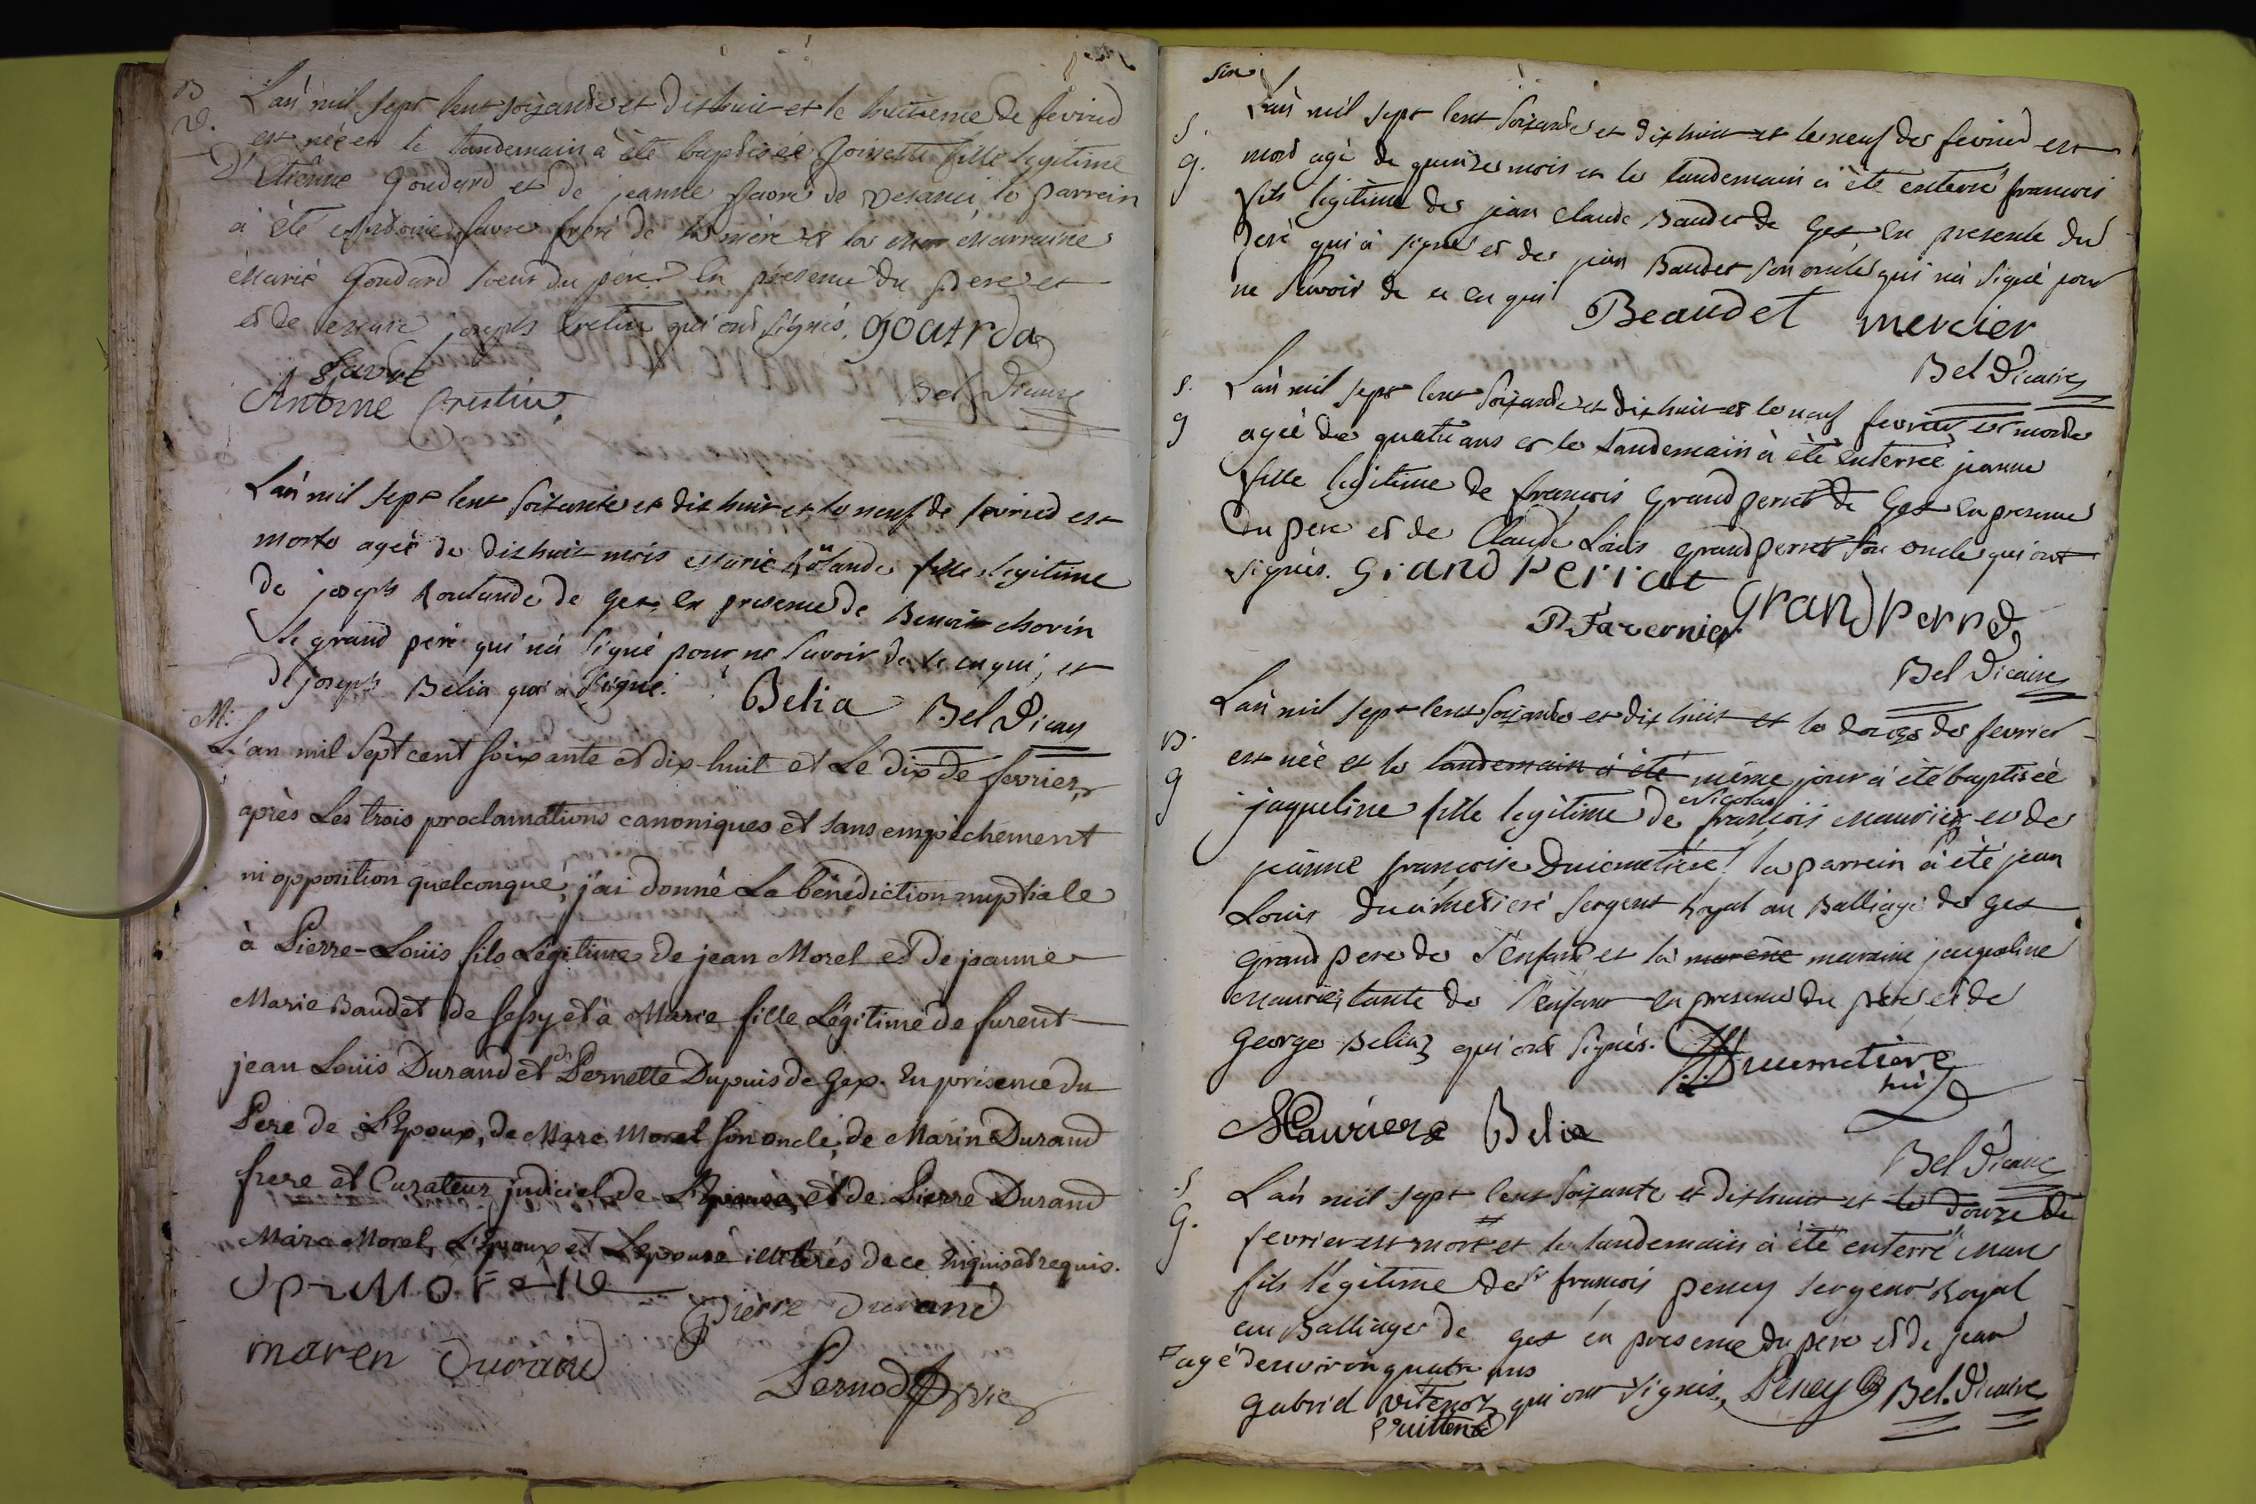 B
V.
L'an mil sept cent soixante et dixhuit et le huitieme de fevried
est née et le landemain à été baptisée Josuette fille legitime
D'Etienne Goudard et de jeanne favre de vesanci le parrein
à été antoine favre frere de la mere et la marraine
Marie Goudard soeur du père en présence du pere et
et de joseph crestin qui ont signés. goatrda
favre
Antoine Crestin
Bel Vicaire
L'an mil sept cent soixante et dix huit et le neuf de fevried est
morte agée de dixhuit mois Marie Roulande fille legitime
de joseph Roulande de gex en presence de Benoit chovin
le grand pere qui n'a signé pour ne savoir de ce enqui, et
de joseph Belia qui a signé. Belia Bel Vicaire
M:
L'an mil sept cent soixante et dix-huit et Le dix de fevrier,
après Les trois proclamations canoniques et sans empêchement
ni opposition quelconque, j'ai donné La bénédiction nuptiale
à Pierre-Loüis fils Légitime de jean Morel et de jeanne
Marie Baudet de Sessy et à Marie fille Légitime de furent
jean Loüis Durand et de Pernette Dupuis de Gex. En présence du
Pere de L'Epoux, de Marc Morel son oncle, de Marin Durand
frere et Curateur judiciel de L'Epouse, et de Pierre Durand
Marc Morel, L'Epoux et L'epouse illiterés de ce Enquis et requis.
Morelle
pierre durand
maren durand
Pernod
six
S.
g.
L'an mil sept cent soixante et dixhuit et le neuf de fevried est
mort agé de quinze mois et le landemain à été enterré francois
fils legitime de jean claude Baudet de Gex en presence du
pere qui à signé et de jean Baudet son oncle qui n'a signé pour
ne savoir de ce enqui
Beaudet mercier
Bel Vicaire
S.
g
L'an mil sept cent soixante et dixhuit et le neuf fevrier est morte
agée de quatre ans et le landemain à été enterrée jeanne
fille legitime de francois Grandperret de Gex en presence
Du pere et de Claude Louis grandperret son oncle qui ont
signés. Grand Perrat Grand Perret
P. Favernier
Bel Vicaire
B.
g
L'an mil sept cent soixante et dix huit et le douze de fevrier
est née et le landemain à été même jour à été baptisée
jaqueline fille legitime de Nicolas francois Mauriez et de
jeanne francoise Ducimetiere le parrein à été jean
Louis Ducimetiere sergent Royal au Balliage de gex
grand pere de l'enfant et la marene maraine jaqueline
Mauriez tante de l'enfant en presence du père et de
george Beliaz qui ont signés. Ducimetiere
Mauriere Belia
Bel Vicaire
S
G.
L'an mil sept cent soixante et dixhuit et le douze de
fevrier est mort et le landemain à été enterré Marc
fils légitime de Sr francois peney sergent Royal
au Balliage de gex en presence du père et de jean
agé d'environ quatre ans
gabriel vitenoz qui ont signés. Peney Bel. Vicaire